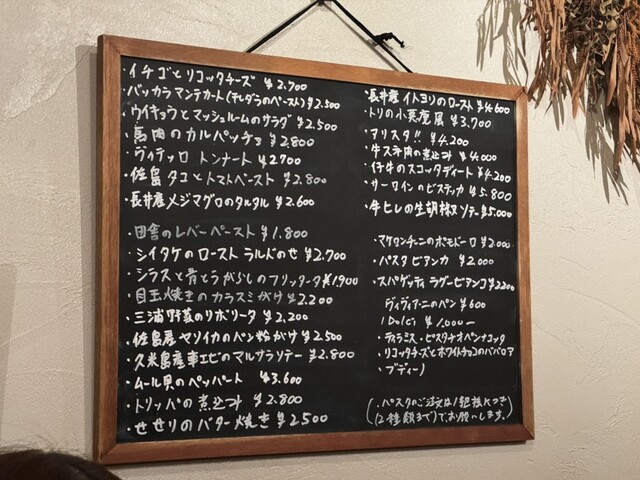 ・イチゴとリコッタチーズ ¥2.700
・バッカラ マンテカート(干しダラのペースト) ¥2.500
・ウイキョウとマッシュルームのサラダ ¥2.500
・馬肉のカルパッチョ ¥2.800
・ヴィテッロ トンナート ¥2700
・佐島タコとトマトペースト ¥2.800
・長井産メジマグロのタルタル ¥2.600
・田舎のレバーペースト ¥1.800
・シイタケのロースト ラルドのせ ¥2.700
・シラスと青とうがらしのフリッタータ ¥1,900
・目玉焼きのカラスミがけ ¥2.200
・三浦野菜のリボリータ ¥2,200
・佐島産ヤリイカのパン粉がけ ¥2.500
・久米島産車エビのマルサラソテー ¥2.800
・ムール貝のペッパータ ¥3.600
・トリッパの煮込み ¥2.800
・せせりのバター焼き ¥2500
・長井産イトヨリのロースト ¥4600
・トリの小悪魔風 ¥3,700
・アリスタ!! ¥4.200
・牛スネ肉の煮込み ¥4,000
・仔牛のスコッタディート ¥4.200
・サーロインのビステッカ ¥5.800
・牛ヒレの生胡椒ソテー ¥5.000
・マケロンチーニのポモドーロ ¥2.000
・パスタ ビアンカ ¥2.000
・スパゲッティ ラグービアンコ ¥2200
ヴィヴィアーニのパン ¥600
Dolci ¥1.000―
・ティラミス・ピスタチオパンナコッタ
・リコッタチーズとホワイトチョコのババロア
・ブディーノ
(・パスタのご注文は1組様につき
2種類まででお願いします。)